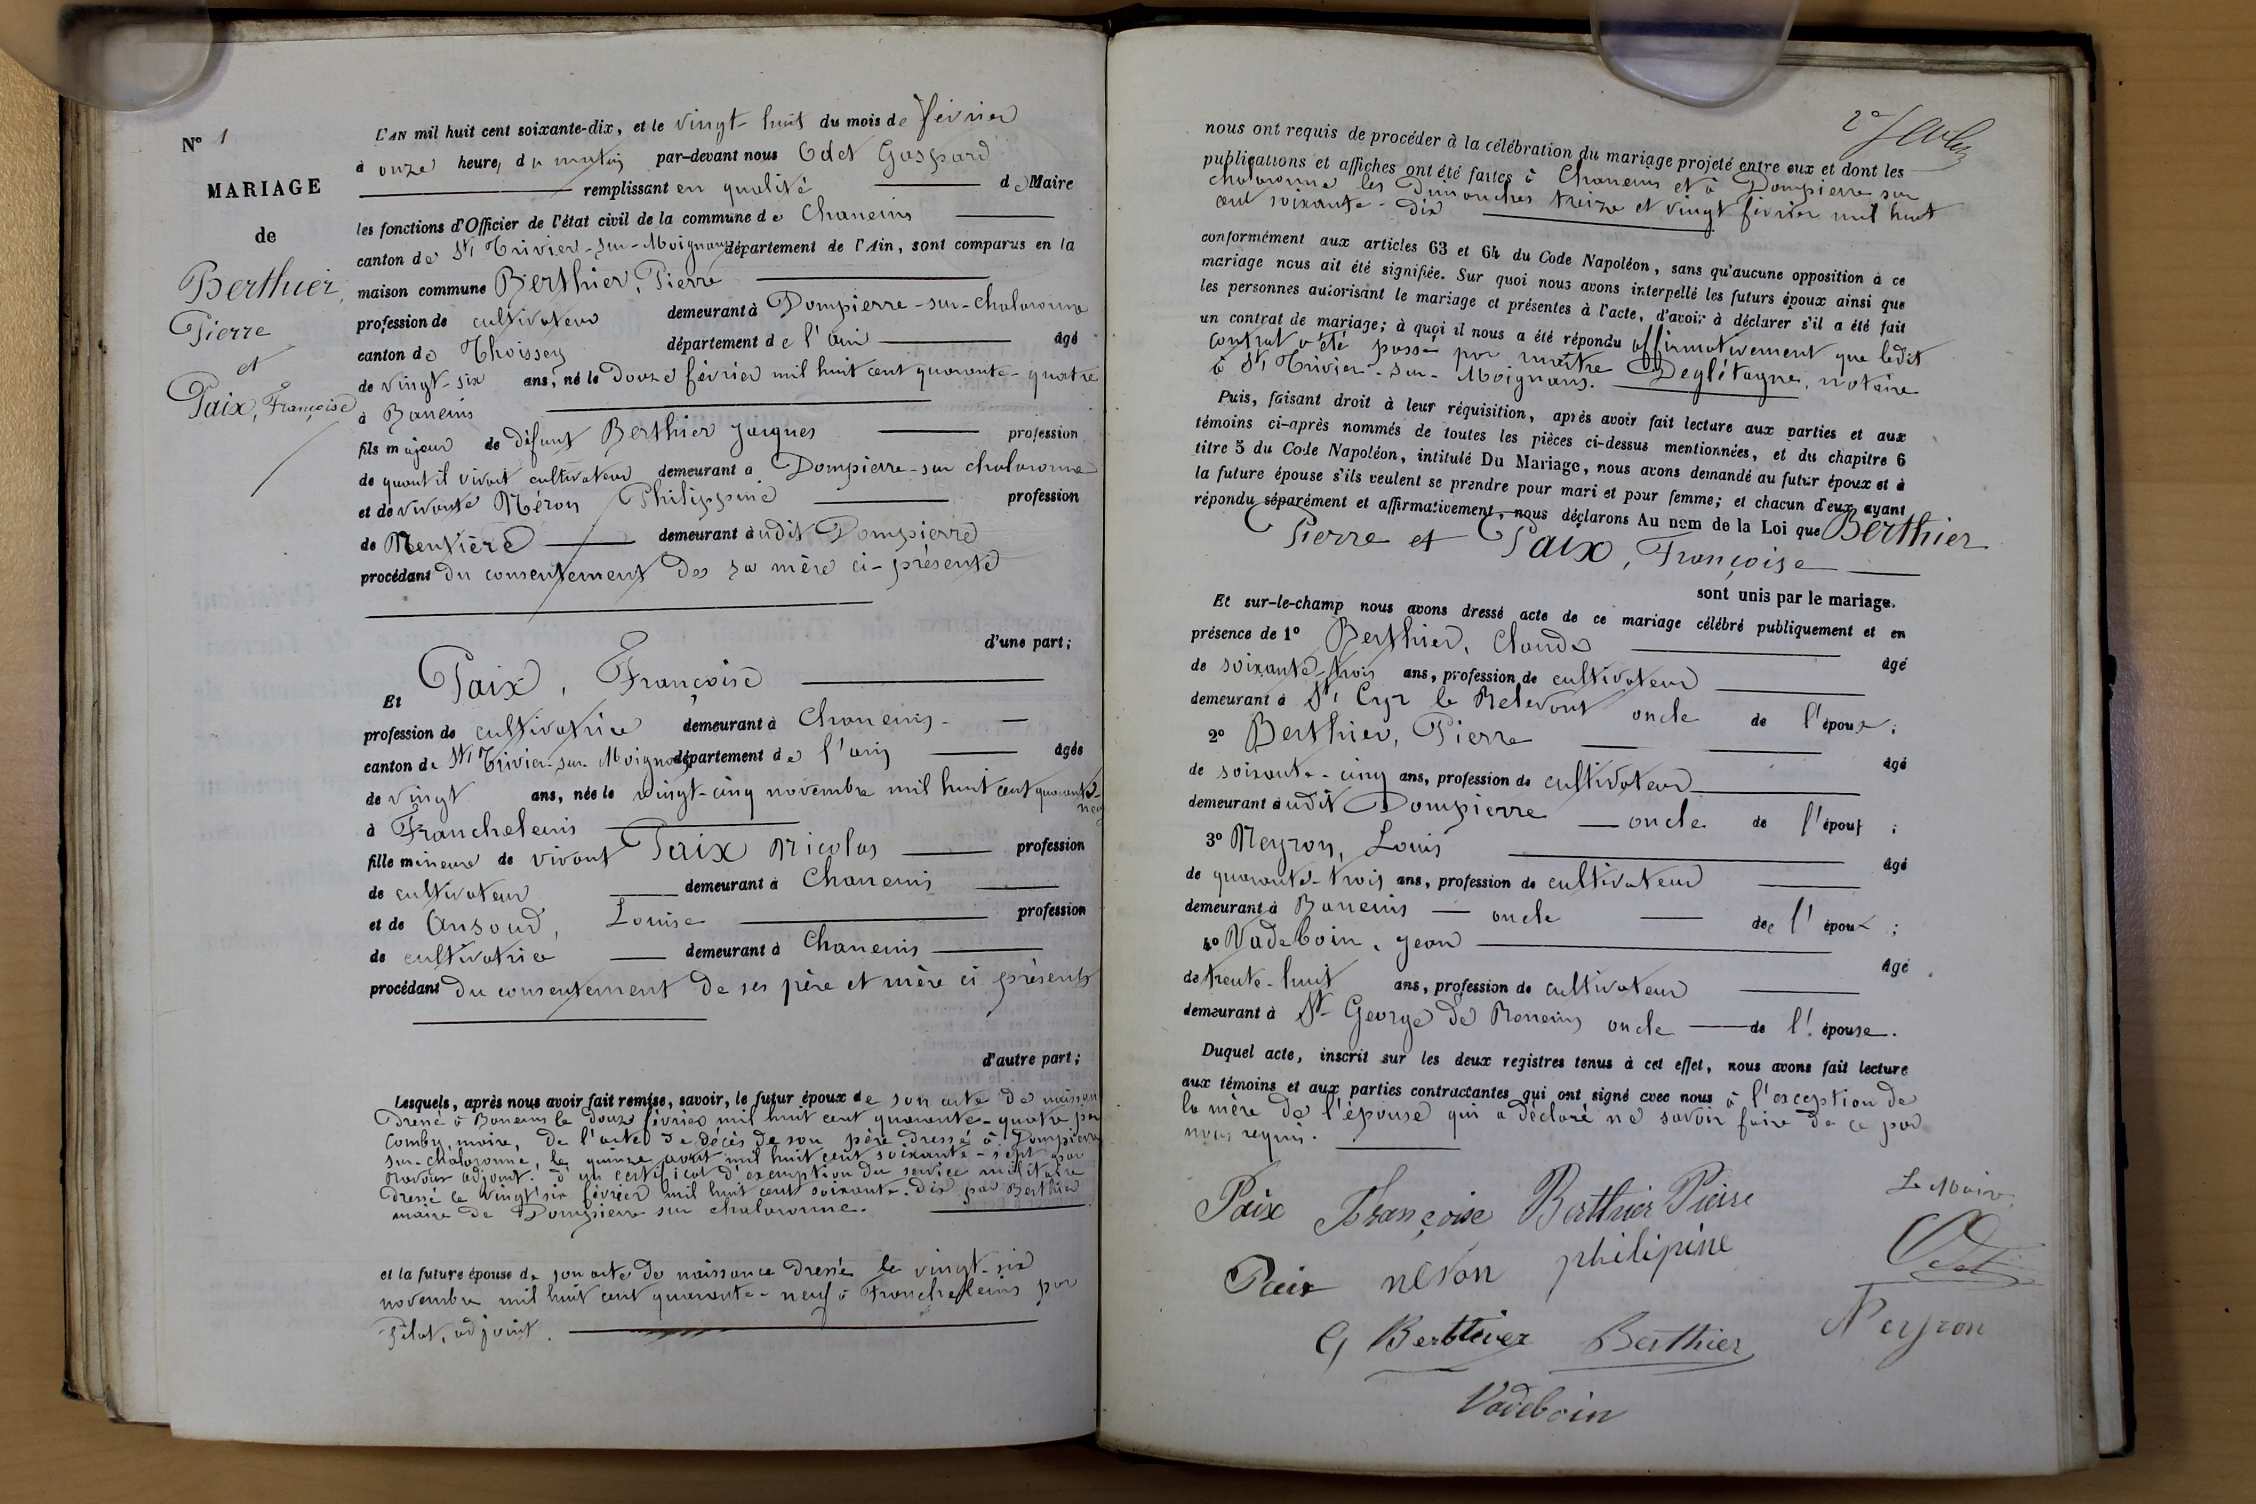 N° 1
MARIAGE
de
Berthier,
Pierre
et
Paix, Françoise
L'AN mil huit cent soixante-dix, et le vingt-huit du mois de février
à onze heures du matin par-devant nous Odet Gaspard
remplissant en qualité de Maire
les fonctions d'Officier de l'état civil de la commune de Chaneins
canton de St Trivier-sur-Moignans département de l'Ain, sont comparus en la
maison commune Berthier, Pierre
profession de cultivateur demeurant à Dompierre-sur-chalaronne
canton de Thoissey département de l'ain âgé
de vingt-six ans, né le douze février mil huit cent quarante-quatre
à Baneins
fils majeur de défunt Berthier Jacques profession
de quant il vivait cultivateur demeurant à Dompierre-sur chalaronne
et de vivante Néron Philippine profession
de Rentière demeurant audit Dompierre
procédant du consentement de sa mère ci-présente
d'une part;
Et Paix, Françoise
profession de cultivatrice demeurant à Chaneins
canton de St Trivier-sur-Moignans département de l'ain âgée
de vingt ans, née le vingt-cinq novembre mil huit cent quarante-
neuf
à Francheleins
fille mineure de vivant Paix Nicolas profession
de cultivateur demeurant à Chaneins
et de Ansoud, Louise profession
de cultivatrice demeurant à Chaneins
procédant du consentement de ses père et mère ci présents
d'autre part;
Lesquels, après nous avoir fait remise, savoir, le futur époux de son acte de naissance
dressé à Baneins le douze février mil huit cent quarante-quatre par
Comby, maire, de l'acte de décès de son père dressé à Dompierre
sur-chalaronne, le quinze août mil huit cent soixante-sept par
adjoint. d'un certificat d'exemption du service militaire
dressé le vingt six février mil huit cent soixante-dix par Berthier
maire de Dompierre sur chalaronne.
et la future épouse de son acte de naissance dressé le vingt-six
novembre mil huit cent quarante-neuf à Francheleins par
Pelot, adjoint.
nous ont requis de procéder à la célébration du mariage projeté entre eux et dont les
publications et affiches ont été faites à Chaneins et à Dompierre sur
chalaronne les Dimanches treize et vingt février mil huit
cent soixante-dix
conformément aux articles 63 et 64 du Code Napoléon, sans qu'aucune opposition à ce
mariage nous ait été signifiée. Sur quoi nous avons interpellé les futurs époux ainsi que
les personnes autorisant le mariage et présentes à l'acte, d'avoir à déclarer s'il a été fait
un contrat de mariage; à quoi il nous a été répondu affirmativement que ledit
contrat a été passé par maître Deglétagne, notaire
à St Trivier-sur-Moignans.
Puis, faisant droit à leur réquisition, après avoir fait lecture aux parties et aux
témoins ci-après nommés de toutes les pièces ci-dessus mentionnées, et du chapitre 6
titre 5 du Code Napoléon, intitulé Du Mariage, nous avons demandé au futur époux et à
la future épouse s'ils veulent se prendre pour mari et pour femme; et chacun d'eux ayant
répondu séparément et affirmativement, nous déclarons Au nom de la Loi que Berthier
Pierre et Paix, Françoise
sont unis par le mariage.
Et sur-le-champ nous avons dressé acte de ce mariage célébré publiquement et en
présence de 1° Berthier, Claude âgé
de soixante-trois ans, profession de cultivateur
demeurant à St Cyr le Relevant oncle de l'époux;
2° Berthier, Pierre âgé
de soixante-cinq ans, profession de cultivateur
demeurant audit Dompierre oncle de l'époux;
3° Neyron, Louis âgé
de quarante-trois ans, profession de cultivateur
demeurant à Baneins oncle de l'époux;
4° Vadeboin, Jean âgé
de trente-huit ans, profession de cultivateur
demeurant à St George de Reneins oncle de l'épouse.
Duquel acte, inscrit sur les deux registres tenus à cet effet, nous avons fait lecture
aux témoins et aux parties contractantes qui ont signé avec nous à l'exception de
la mère de l'épouse qui a déclaré ne savoir faire de ce par
nous requis.
Paix Françoise Berthier Pierre Le Maire
Paix néron philipine Odet
C Berthier Berthier Neyron
Vadeboin